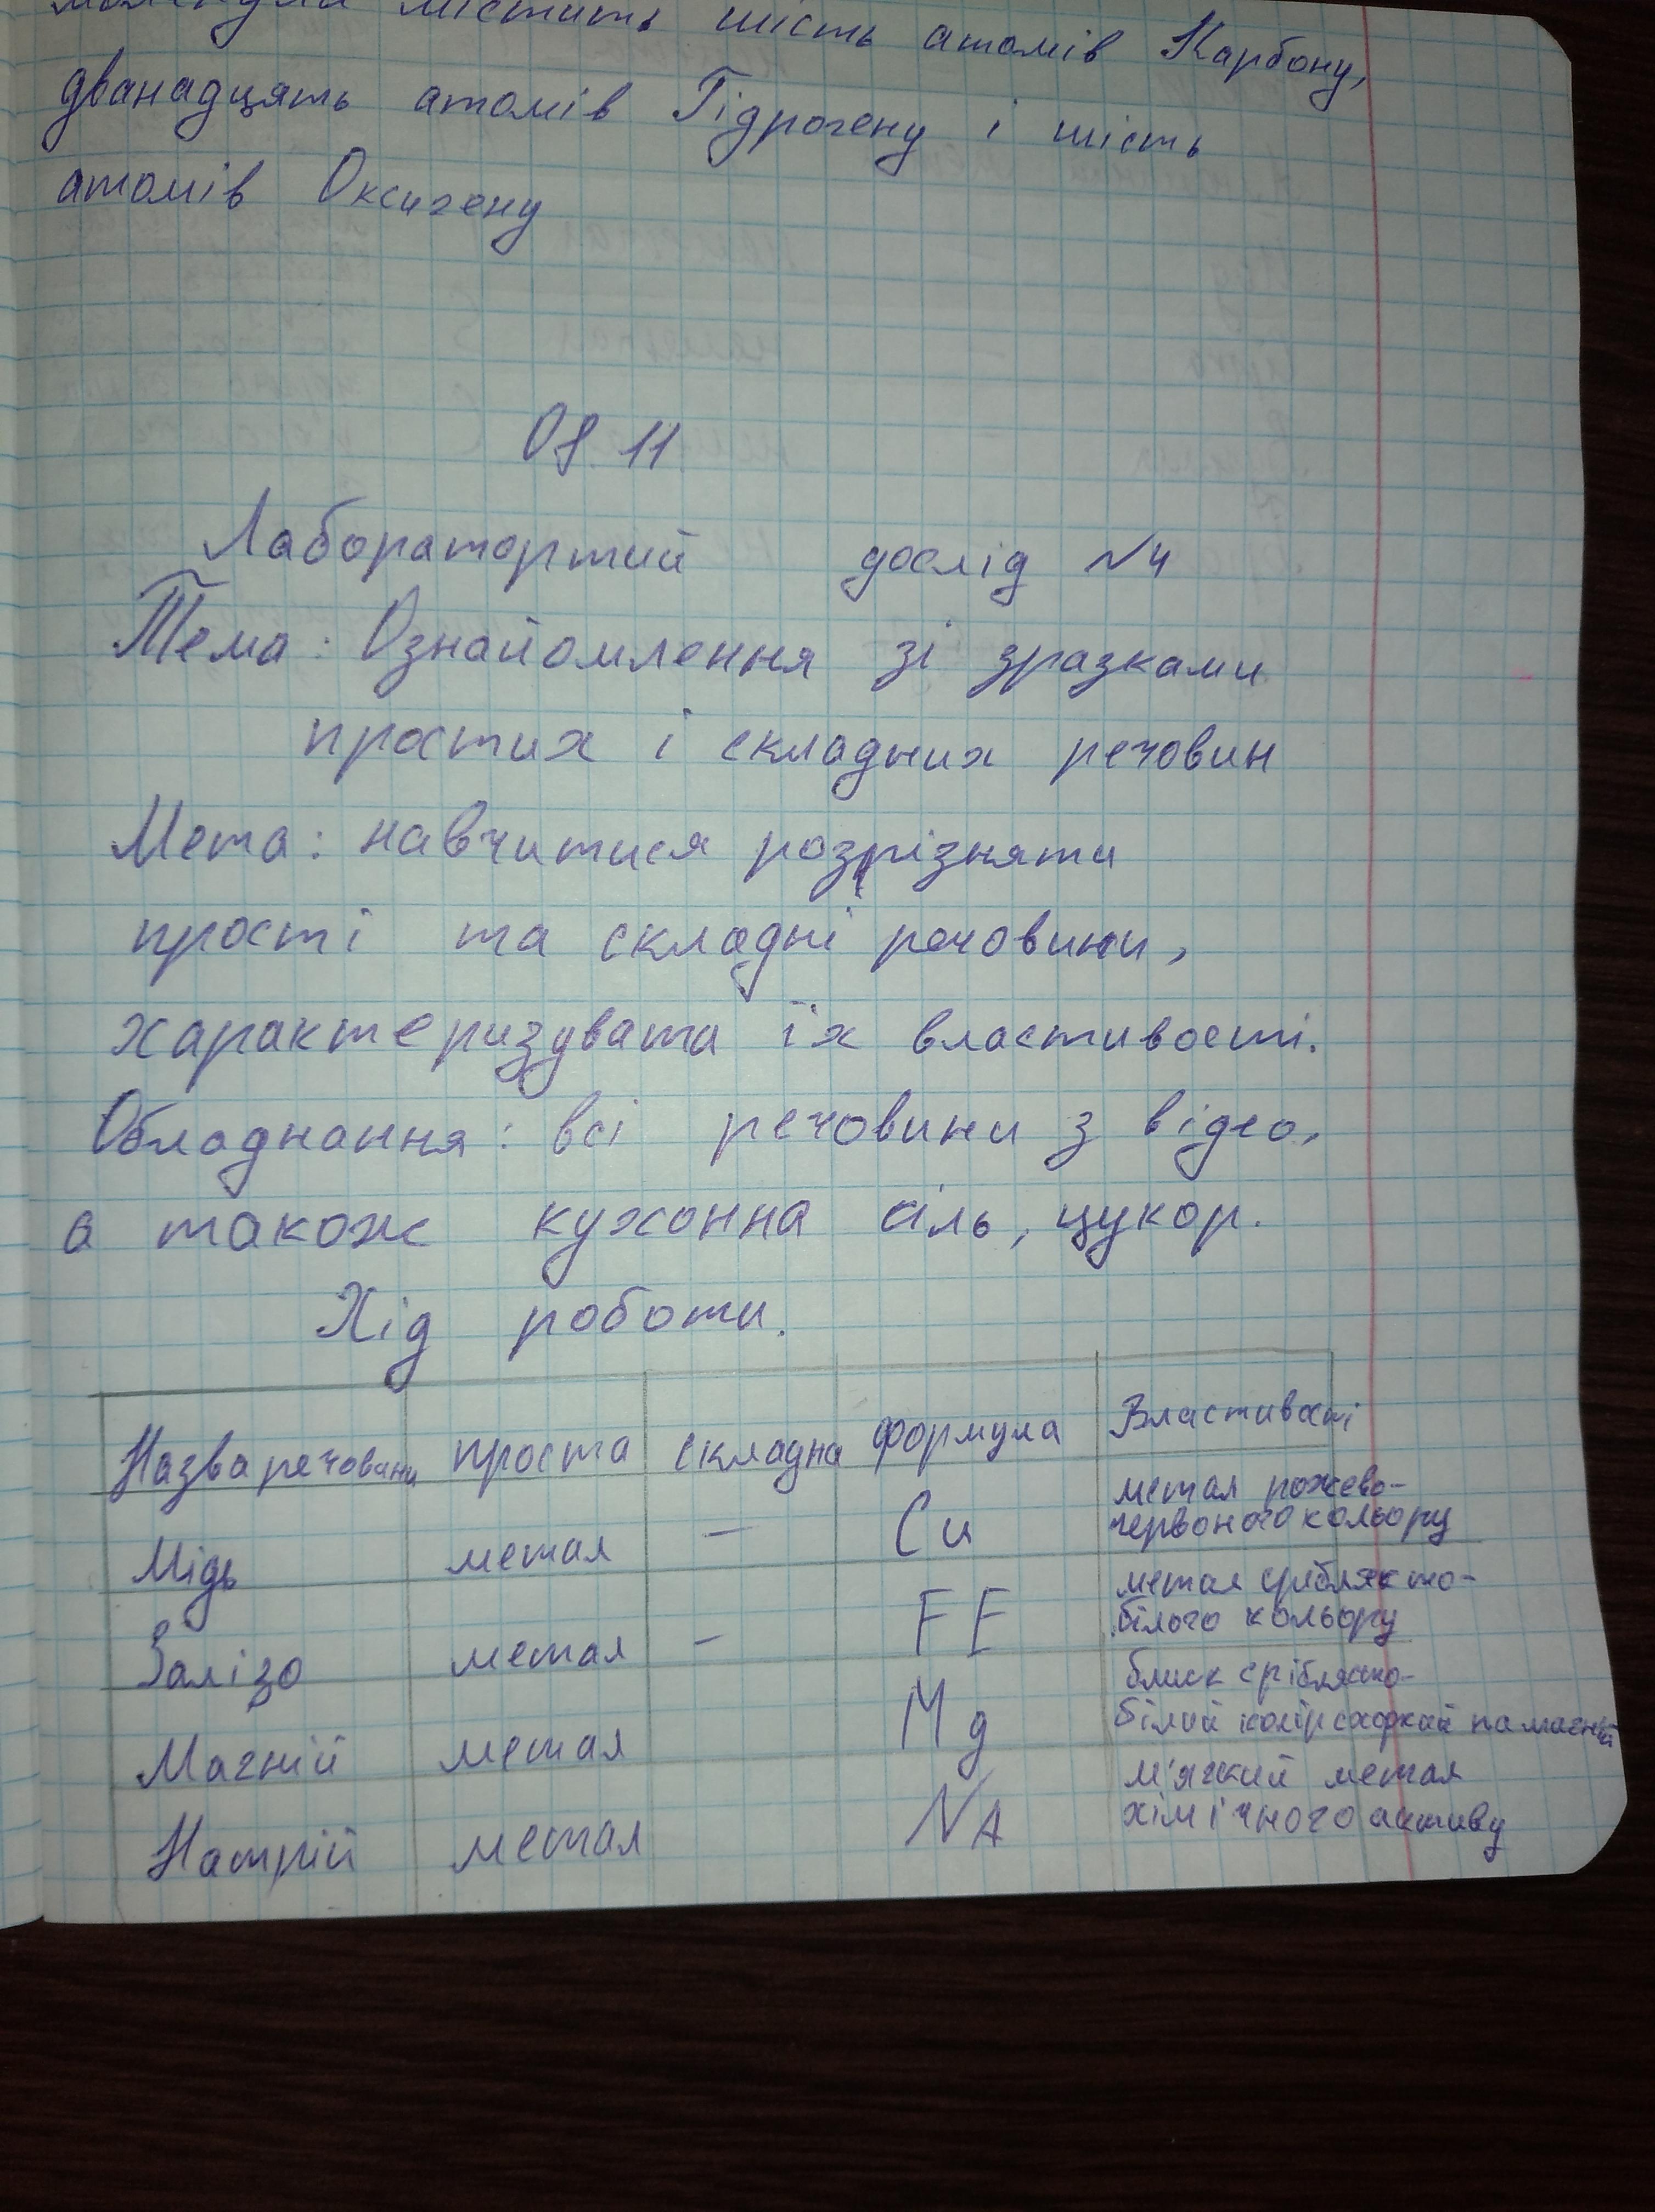 молекула містить шість атомів Карбону,
дванадцять атомів Гідрогену і шість
атомів Оксигену
08.11
Лаборатортий дослід №4
Тема: Ознайомлення зі зразками
простих і складних речовин
Мета: навчитися розрізняти
прості та складні речовини,
характеризувата їх властивості.
Обладнання: всі речовини з відео,
а також кухонна сіль, цукор.
Хід роботи.
Назва речовини проста складна формула Властивості
Мідь метал — Cu метал рожево-
червоного кольору
Залізо метал — FE метал сріблясто-
білого кольору
Магній метал Mg блиск сріблясто-
білий колір
Натрій метал NA м'ягкий метал
хімічного активу